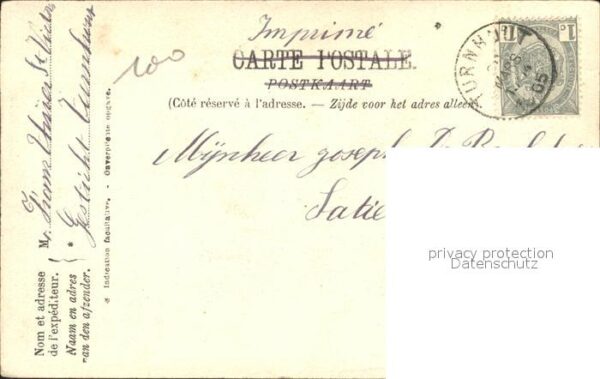 Imprimé
CARTE POSTALE.
POSTKAART
(Côté réservé à l'adresse. — Zijde voor het adres alleen
Mijnheer Joseph
100
TURNHOUT
05
1c
Nom et adresse
de l'expéditeur.
Naam en adres
van den afzender.
Mr Frans
Gesticht Turnhout
* Indication facultative. - Onverplichte opgave.
privacy protection
Datenschutz